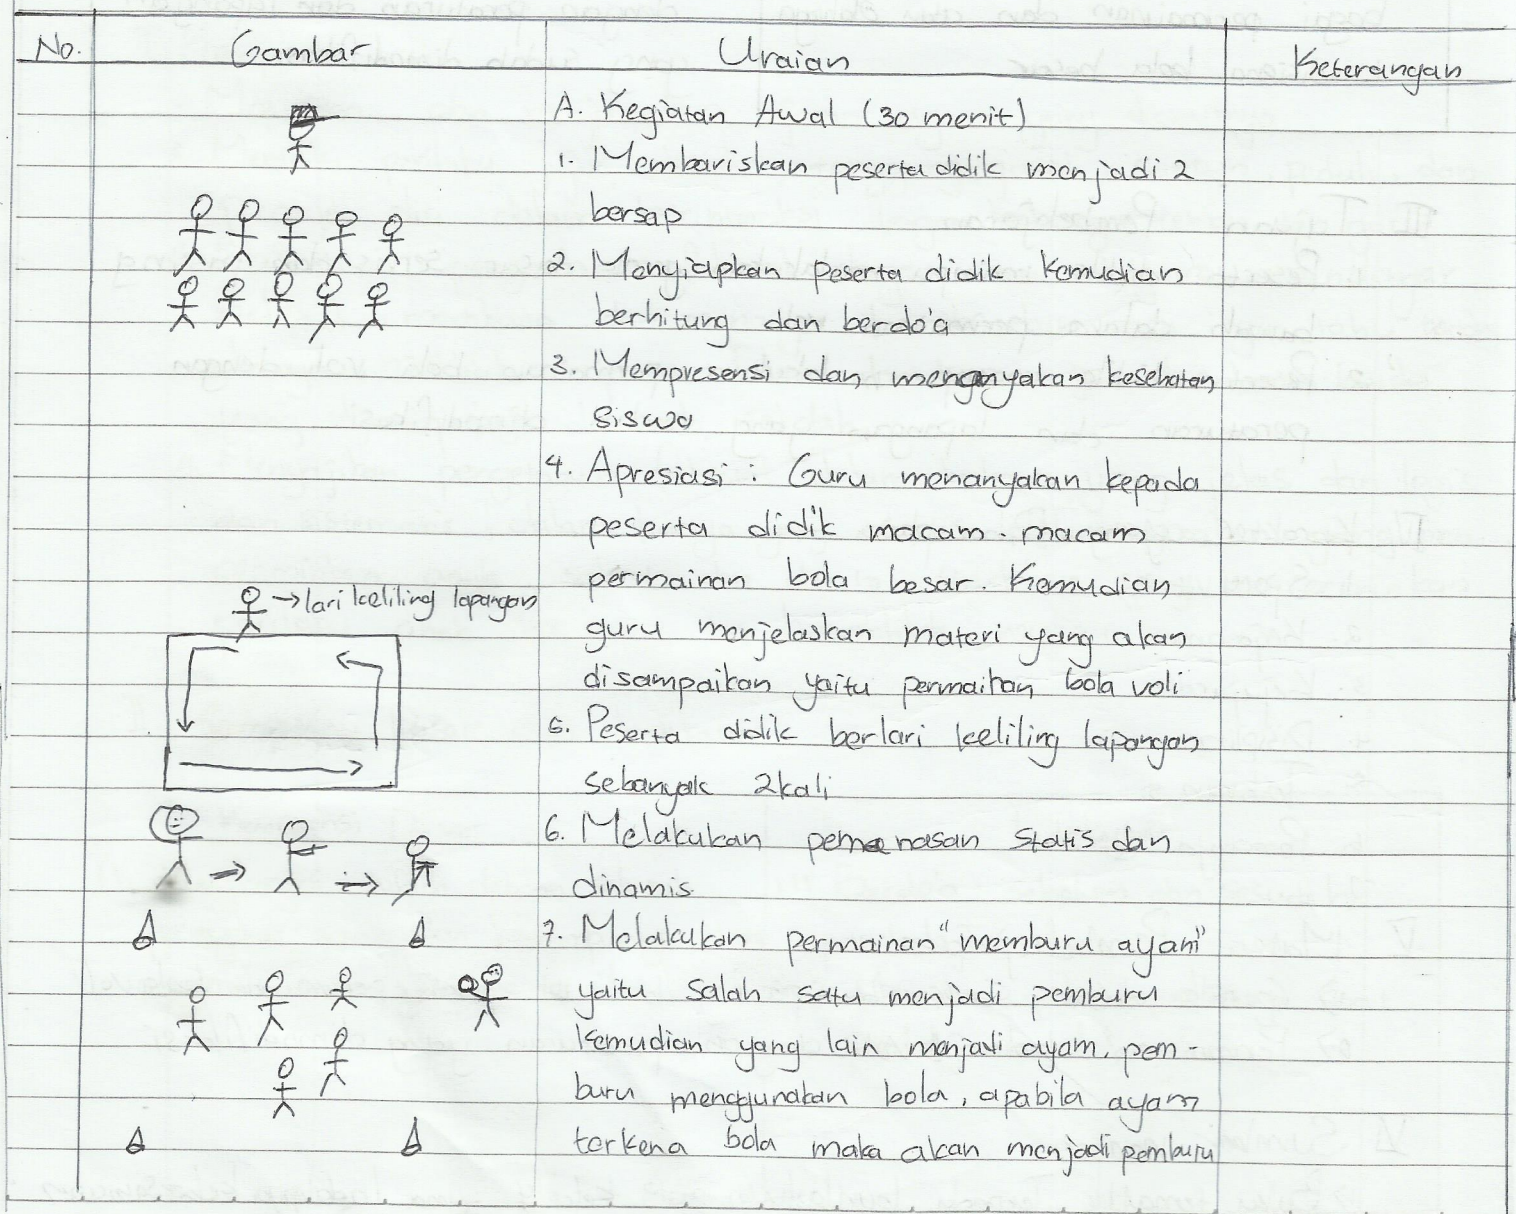 No. Gambar Uraian Keterangan
A. Kegiatan Awal (30 menit)
1. Membariskan peserta didik menjadi 2
bersap
2. Menyiapkan peserta didik kemudian
berhitung dan berdo'a
3. Mempresensi dan mengnyakan kesehatan
siswa
4. Apresiasi : Guru menanyakan kepada
peserta didik macam - macam
permainan bola besar. Kemudian
→ lari keliling lapangan
guru menjelaskan materi yang akan
disampaikan yaitu permainan bola voli
5. Peserta didik berlari keliling lapangan
sebanyak 2 kali
6. Melakukan pemanasan statis dan
dinamis
7. Melakukan permainan "memburu ayam"
yaitu salah satu menjadi pemburu
kemudian yang lain menjadi ayam, pem-
buru menggunakan bola, apabila ayam
terkena bola maka akan menjadi pemburu